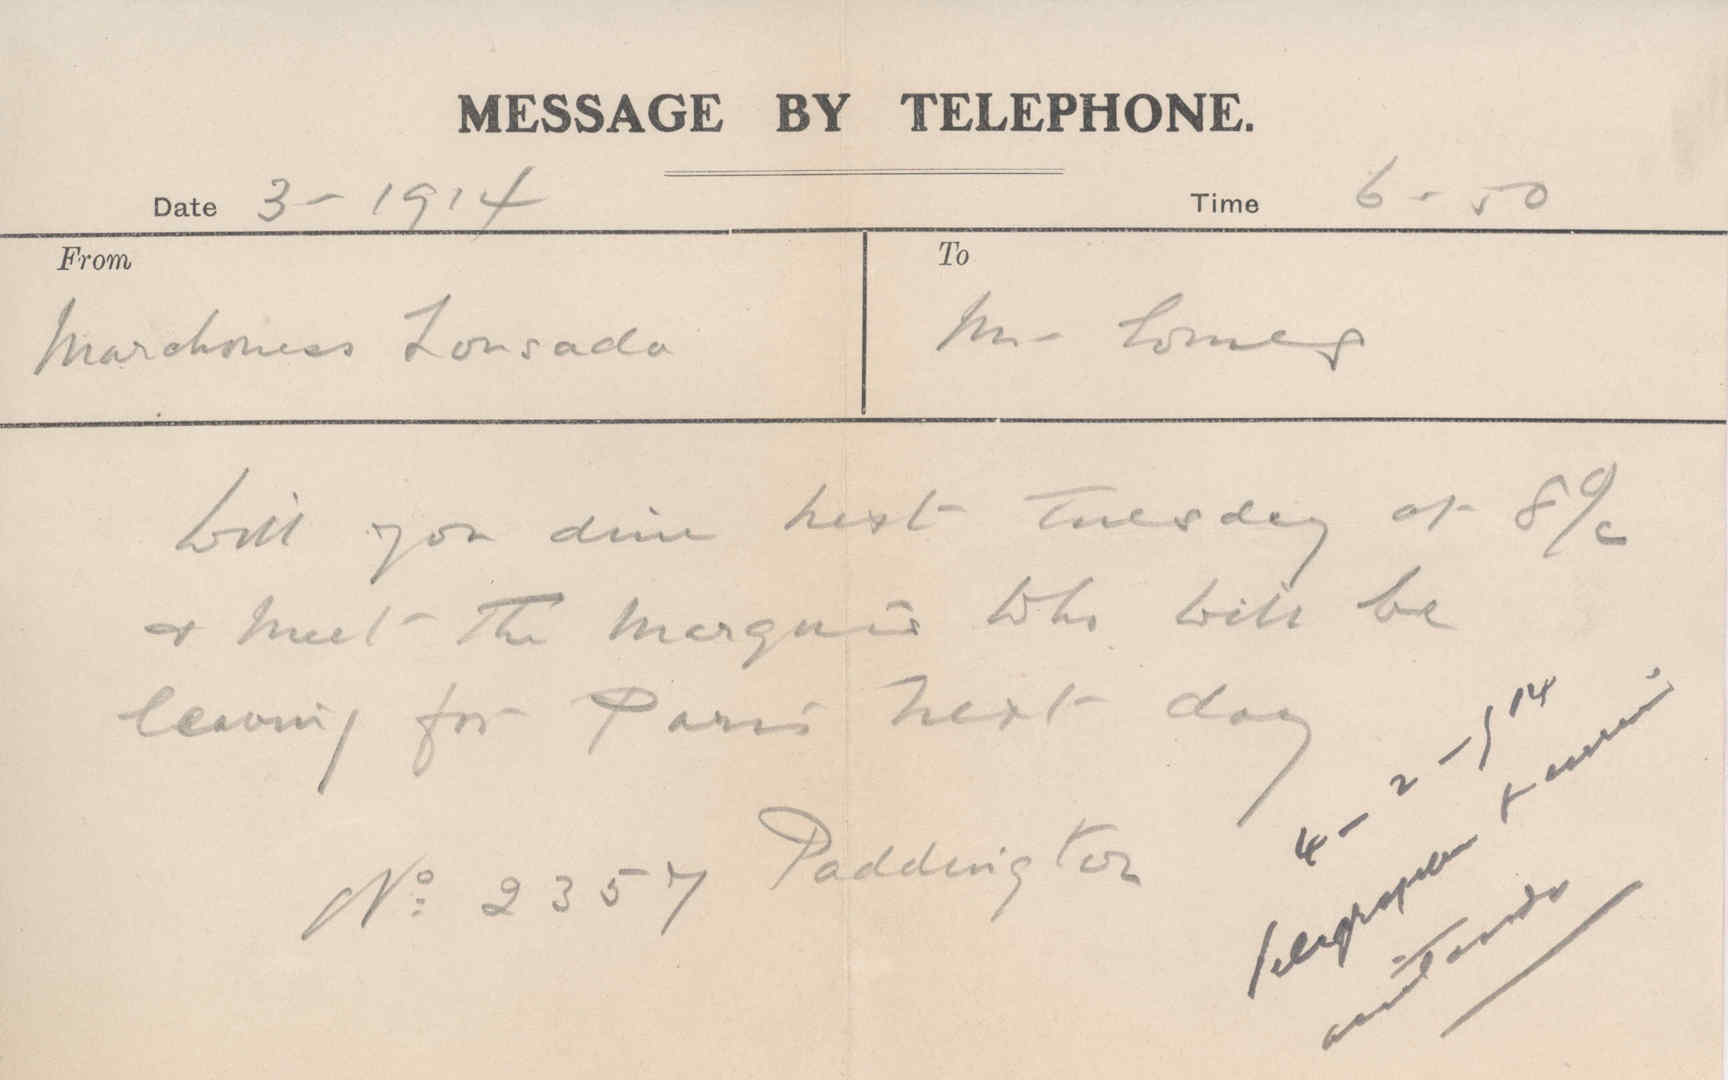 MESSAGE BY TELEPHONE.
Date 3 - 1914
Time 6 - 50
From
To
Marchoness Lousada
Mr Gomes
Will you dine next Tuesday at 8 o/c
& meet the Marquis who will be
leaving for Paris next day
No: 2357 Paddington
4 - 2 - 914